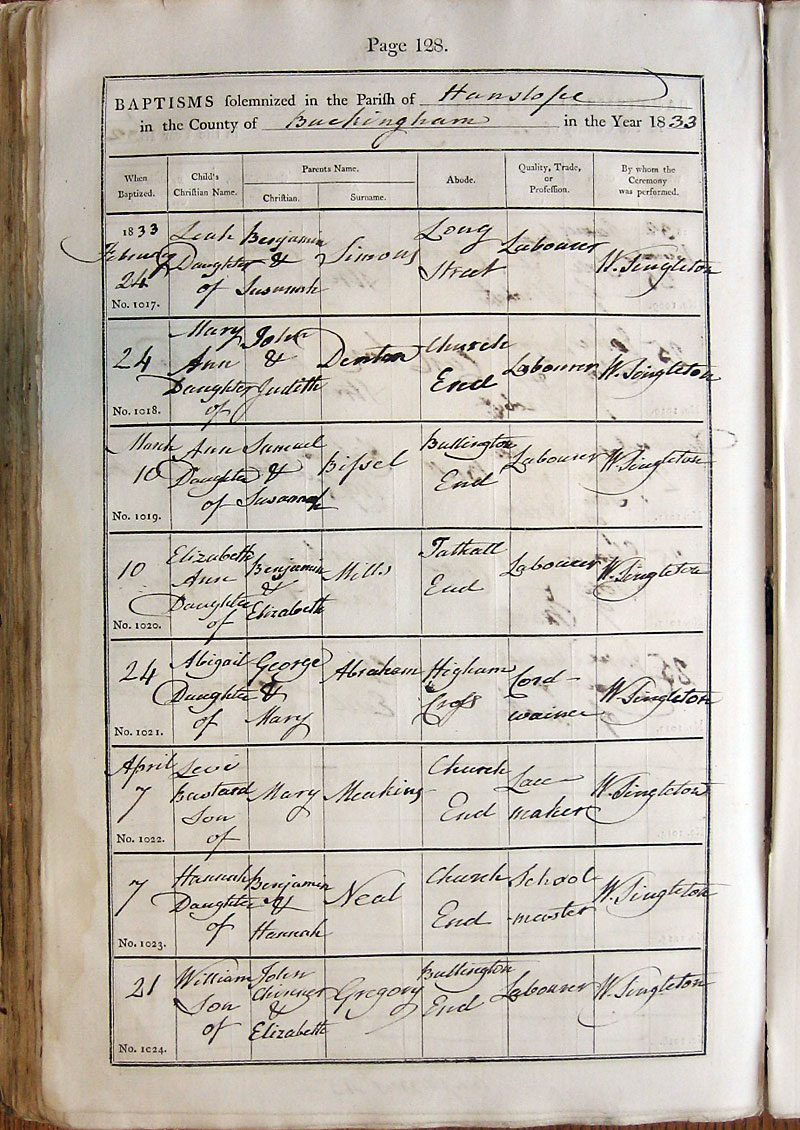 Page 128.
BAPTISMS solemnized in the Parish of Hanslope
in the County of Buckingham in the Year 1833
When Baptized.
Child's Christian Name.
Parents Name.
Christian.
Surname.
Abode.
Quality, Trade, or Profession.
By whom the Ceremony was performed.
1833
February
24
No. 1017.
Leah
Daughter
of
Benjamin
&
Susannah
Simons
Long
Street
Labourer
W. Singleton
24
No. 1018.
Mary
Ann
Daughter
of
John
&
Judith
Denton
Church
End
Labourer
W. Singleton
March
10
No. 1019.
Ann
Daughter
of
Samuel
&
Susannah
Bissel
Bullington
End
Labourer
W. Singleton
10
No. 1020.
Elizabeth
Ann
Daughter
of
Benjamin
&
Elizabeth
Mills
Tathall
End
Labourer
W. Singleton
24
No. 1021.
Abigail
Daughter
of
George
&
Mary
Abraham
Higham
Cross
Cord-
wainer
W. Singleton
April
7
No. 1022.
Levi
Bastard
Son
of
Mary
Meakins
Church
End
Lace
maker
W. Singleton
7
No. 1023.
Hannah
Daughter
of
Benjamin
&
Hannah
Neal
Church
End
School
-master
W. Singleton
21
No. 1024.
William
Son
of
John
Chinner
&
Elizabeth
Gregory
Bullington
End
Labourer
W. Singleton